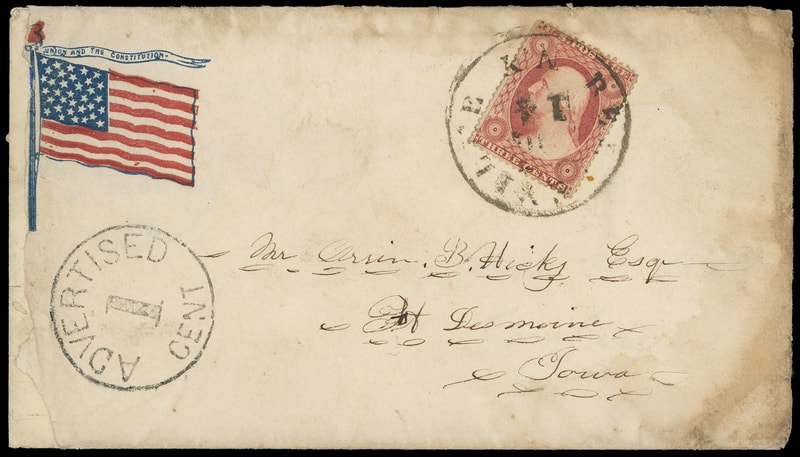 UNION AND THE CONSTITUTION
THREE CENTS
ADVERTISED
1
CENT
Mr Orrin. B. Hicks Esqr
Ft Desmoine
Iowa